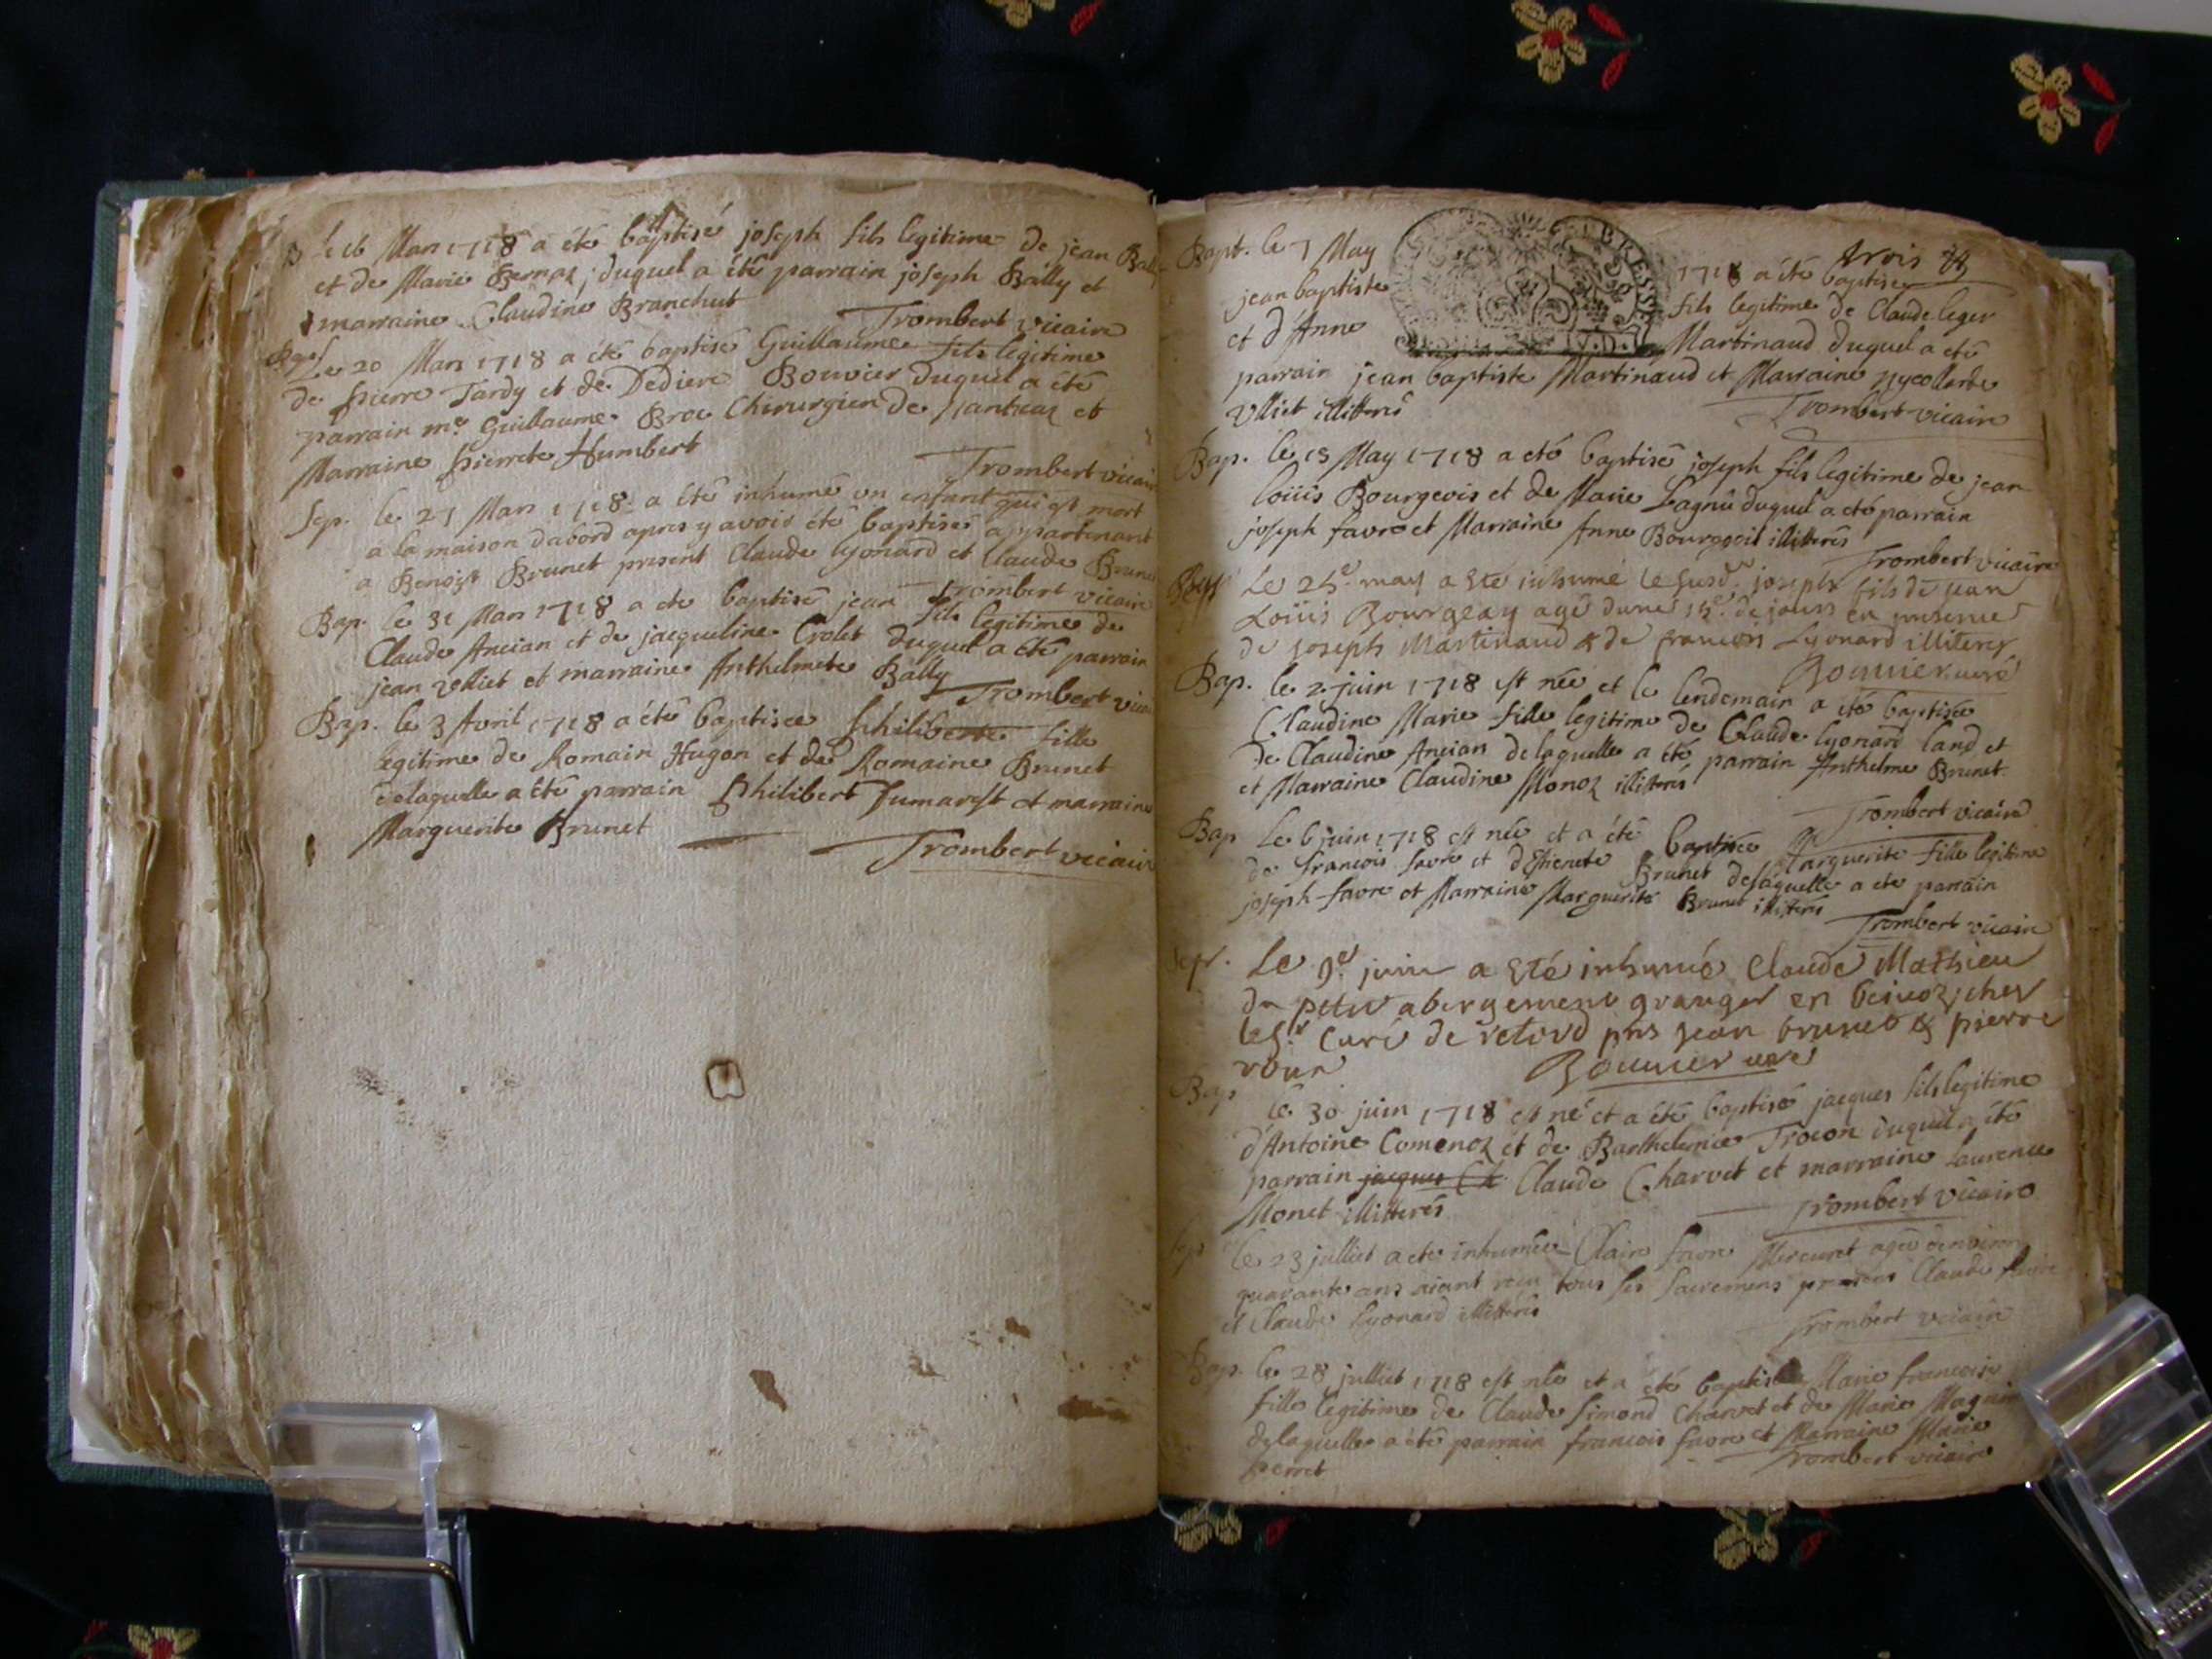 B le 16 Mars 1718 a été baptisé joseph fils legitime de jean Bally
et de Marie Bernoz; duquel a été parrain joseph Bally et
marraine Claudine Branchut
Trombert vicaire
Bapt. Le 20 Mars 1718 a été baptisé Guillaume fils legitime
de pierre Tardy et de Dediere Bouvier duquel a été
parrain me Guillaume Broc Chirurgien de Nantuaz et
Marraine pierrete Humbert
Trombert vicaire
Sep. le 21 Mars 1718 a été inhumé un enfant qui est mort
a la maison dabord apres y avoir été baptisé appartenant
a Benoist Brunet present Claude lyonard et Claude Brunet
Trombert vicaire
Bap. le 31 Mars 1718 a ete baptisé jean fils legitime de
Claude Ancian et de jacqueline Crolet duquel a été parrain
jean et marraine Anthelmete Bally
Trombert vicaire
Bap. le 3 Avril 1718 a été baptisee philiberte fille
legitime de Romain Hugon et de Romaine Brunet
delaquelle a été parrain Philibert Jumarest et marraine
Marguerite Brunet
Trombert vicaire
trois
Bapt. le 7 May 1718 a été baptisé
BRESSE
jean baptiste fils legitime de Claude leger
et d'Anne Martinaud duquel a eté
parrain jean baptiste Martinaud et Marraine nycollarde
Vlliet illitterés
Trombert vicaire
Bap. le 15 May 1718 a eté baptisé joseph fils legitime de jean
loüis Bourgeois et de Marie duquel a eté parrain
joseph favre et Marraine Anne Bourgeois illitterés
Trombert vicaire
Le 25e may a eté inhumé le susd. joseph fils de jean
Loüis Bourgeay agé dune 15e de jours en presence
de joseph Martinaud & de francois Lyonard illiterez
Bouvier curé
Bap. le 2 juin 1718 est née et le lendemain a été baptisée
Claudine Marie fille legitime de Claude lyonard land et
de Claudine Ancian delaquelle a été parrain Anthelme Brunet
et Marraine Claudine Monoz illitterés
Trombert vicaire
Bap Le 6 juin 1718 est née et a été baptisée Marguerite fille legitime
de francois favre et d'Estienete Brunet delaquelle a ete parrain
joseph favre et Marraine Marguerite Brunet illitterés
Trombert vicaire
Sep. Le 9e juin a eté inhumé Claude Mathieu
du petit abergement granger en chez
le Sr Curé de retord pns jean brunet & pierre
Bouvier curé
Bap le 30 juin 1718 est né et a été baptisé jacques fils legitime
d'Antoine Comenoz et de Barthelemie Trocon duquel a été
parrain jacques Ch Claude Charvet et marraine laurence
Monet illitterés
Trombert vicaire
Sep le 23 julliet a ete inhumée Claire favre Mercuret agée denviron
quarante ans aiant reçu tous ses sacremens presens Claude favre
et Claude lyonard illitterés
Trombert vicaire
Bap. le 28 julliet 1718 est née et a été baptisée Marie francoise
fille legitime de Claude simond Charvet et de Marie
delaquelle a été parrain francois favre et Marraine Marie
perret
Trombert vicaire